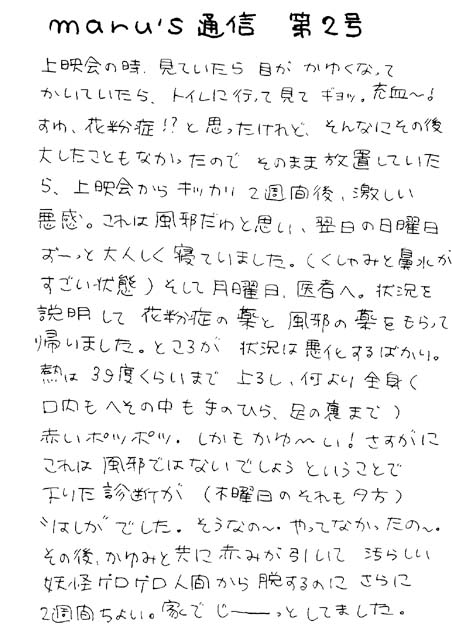 maru's 通信 第2号
上映会の時、見ていたら 目が かゆくなって
かいていたら、トイレに行って見て ギョッ。充血〜!
すわ、花粉症!?と思ったけれど、そんなにその後
大したこともなかったので そのまま放置していた
ら、上映会から キッカリ 2週間後、激しい
悪感。これは風邪だわと思い、翌日の日曜日
ずーっと大人しく寝ていました。(くしゃみと鼻水が
すごい状態)そして月曜日、医者へ。状況を
説明して 花粉症の薬と 風邪の薬をもらって
帰りました。ところが 状況は悪化するばかり。
熱は 39度くらいまで 上るし、何より全身(
口内も へその中も 手のひら、足の裏まで)
赤いポツポツ。しかもかゆ〜い!さすがに
これは 風邪ではないでしょうということで
下りた診断が (木曜日のそれも夕方)
〝はしか〟でした。そうなの〜。やってなかったの〜。
その後、かゆみと共に赤みが引いて 汚らしい
妖怪ゲロゲロ人間から 脱するのに さらに
2週間ちょい。家でじーーっとしてました。